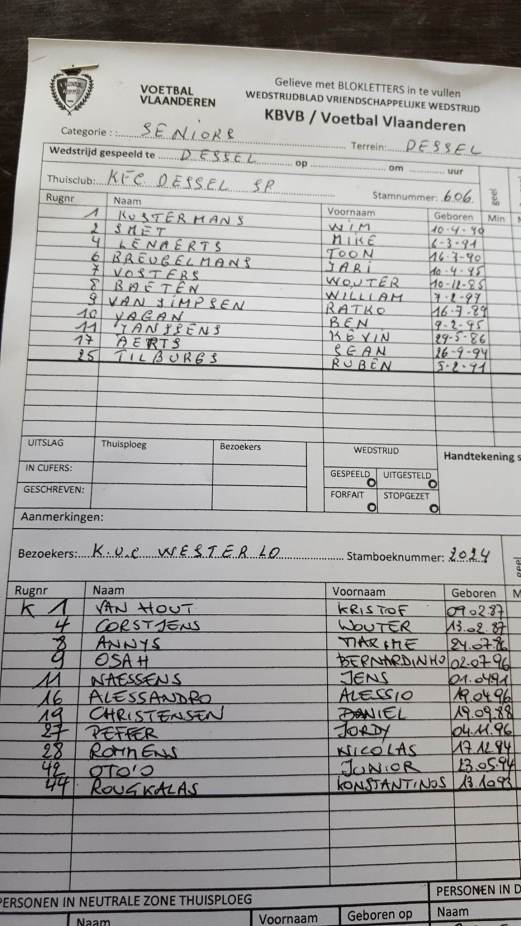 Gelieve met BLOKLETTERS in te vullen
VOETBAL VLAANDEREN
WEDSTRIJDBLAD VRIENDSCHAPPELIJKE WEDSTRIJD
KBVB / Voetbal Vlaanderen
Categorie : : SENIORS Terrein: DESSEL
Wedstrijd gespeeld te DESSEL op om uur
Thuisclub: KFC DESSEL SP Stamnummer: 606 geel
Rugnr Naam Voornaam Geboren Min
1 KUSTERMANS WIM 10-4-90
2 SMET MIKE 6-3-91
4 LENAERTS TOON 16-3-90
6 BREUGELMANS JARI 10-4-95
7 VOSTERS WOUTER 10-12-85
8 BAETEN WILLIAM 7-2-97
9 VAN SIMPSEN RATKO 16-7-89
10 VAGAN BEN 9-2-95
11 JANSSENS KEVIN 29-5-86
17 AERTS SEAN 26-9-94
25 TILBURGS RUBEN 5-2-91
UITSLAG Thuisploeg Bezoekers WEDSTRIJD Handtekening
IN CIJFERS: GESPEELD UITGESTELD
GESCHREVEN: FORFAIT STOPGEZET
Aanmerkingen:
Bezoekers: K.V.C WESTERLO Stamboeknummer: 2024 geel
Rugnr Naam Voornaam Geboren M
K 1 VAN HOUT KRISTOF 09.02.87
4 CORSTJENS WOUTER 13.02.87
8 ANNYS MAXIME 24.07.86
9 OSAH BERNARDINHO 02.07.96
11 NAESSENS JENS 01.0491
16 ALESSANDRO ALESSIO 19.04.96
19 CHRISTENSEN DANIEL 19.09.88
27 PEFFER JORDY 04.11.96
28 ROMMENS NICOLAS 17.12.94
42 OTO'O JUNIOR 23.05.94
44 ROUGKALAS KONSTANTINOS 13.1093
PERSONEN IN NEUTRALE ZONE THUISPLOEG PERSONEN IN D
Naam Voornaam Geboren op Naam